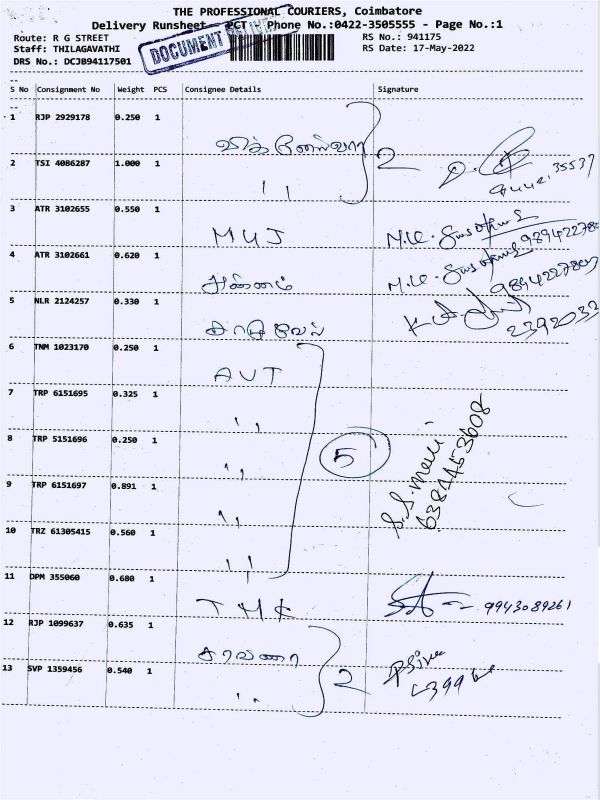 THE PROFESSIONAL COURIERS, Coimbatore
Delivery Runsheet - PCT - Phone No.:0422-3505555 - Page No.:1
Route: R G STREET RS No.: 941175
Staff: THILAGAVATHI RS Date: 17-May-2022
DRS No.: DCJ894117501
DOCUMENT
S No Consignment No Weight PCS Consignee Details Signature
1 RJP 2929178 0.250 1
2 2
2 TSI 4086287 1.000 1 ,, 35537
3 ATR 3102655 0.550 1 MUJ M.K.
4 ATR 3102661 0.620 1 அன்னம் M.K.
5 NLR 2124257 0.330 1 2392032
6 TNM 1023170 0.250 1 AVT
7 TRP 6151695 0.325 1 ,,
8 TRP 5151696 0.250 1 ,, 5
9 TRP 6151697 0.891 1 ,,
10 TRZ 61305415 0.560 1 ,,
11 DPM 355060 0.680 1 TMK 9943089261
12 RJP 1099637 0.635 1 சரவணா
13 SVP 1359456 0.540 1 ,, 2